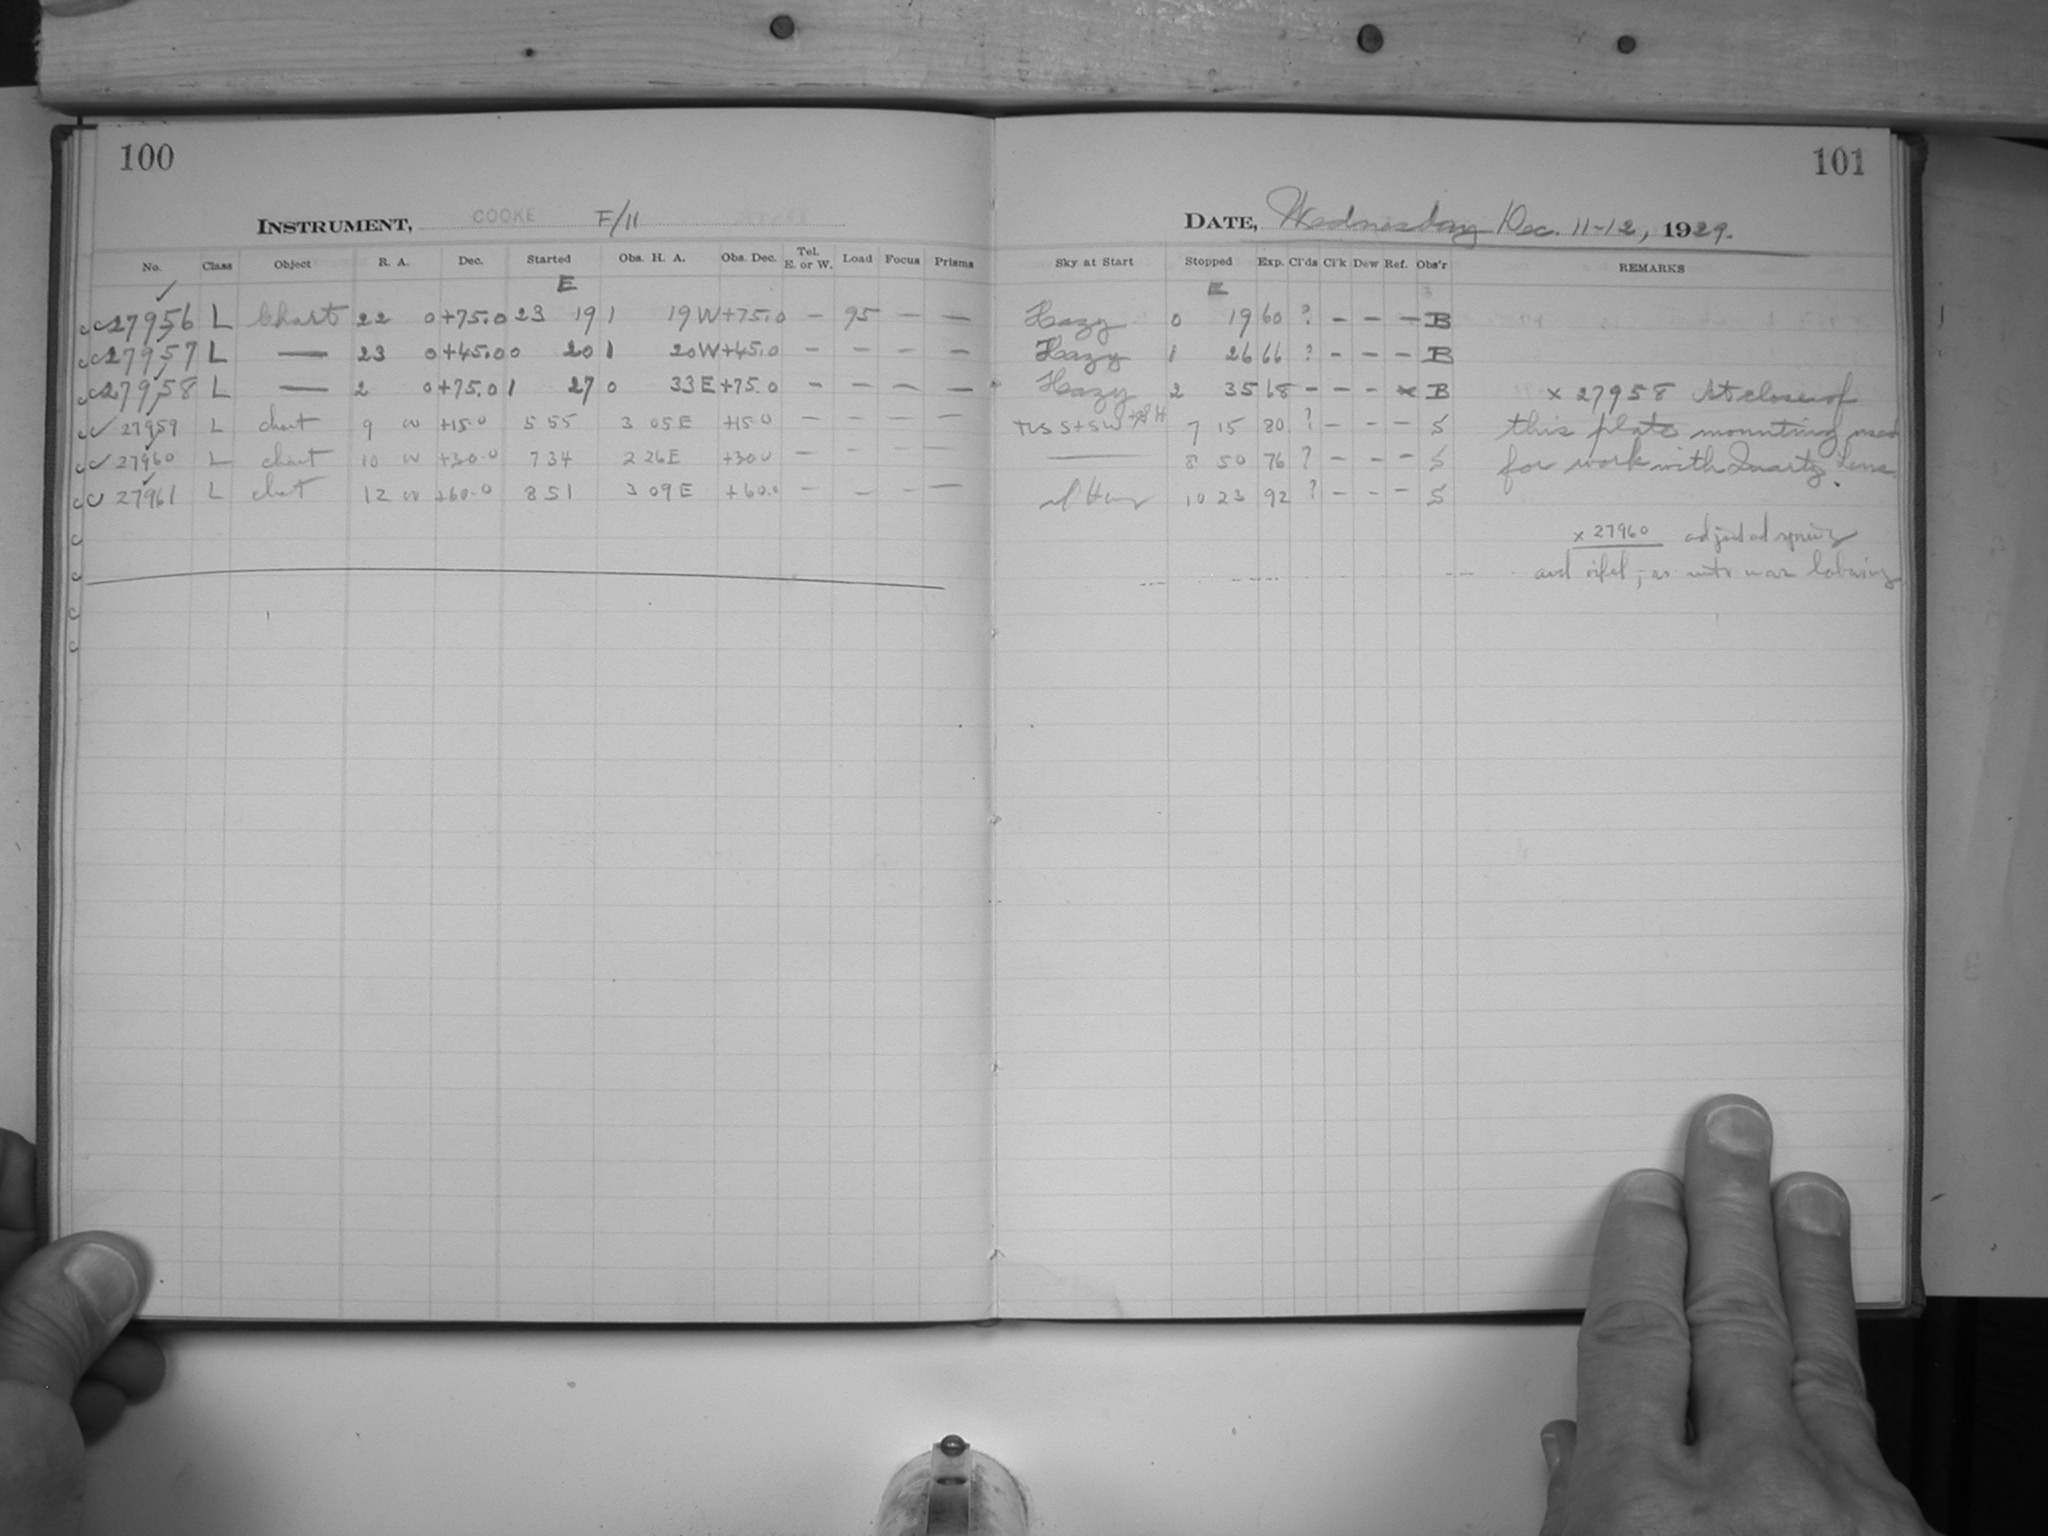 100
INSTRUMENT, COOKE F/11
No. Class Object R. A. Dec. Started Obs. H. A. Obs. Dec. Tel. E. or W. Load Focus Prisms
E
27956 L Chart 22 0 +75.0 23 19 1 19 W +75.0 - 95 - -
27957 L — 23 0 +45.0 0 20 1 20 W +45.0 - - - -
27958 L — 2 0 +75.0 1 27 0 33 E +75.0 - - - -
27959 L chart 9 00 +15.0 5 55 3 05 E +15.0 - - - -
27960 L chart 10 00 +30.0 7 34 2 26 E +30.0 - - - -
27961 L chart 12 00 +60.0 8 51 3 09 E +60.0 - - - -
101
DATE, Wednesday Dec. 11-12, 1929.
Sky at Start Stopped Exp. Cl'ds Cl'k Dew Ref. Obs'r REMARKS
E
Hazy 0 19 60 ? - - - B
Hazy 1 26 66 ? - - - B
Hazy 2 35 68 - - - x B x 27958 At close of
7 15 80 ? - - - S this plate mounting used
— 8 50 76 ? - - - S for work with Quartz Lens.
10 23 92 ? - - - S
x 27960 adjusted
and as was